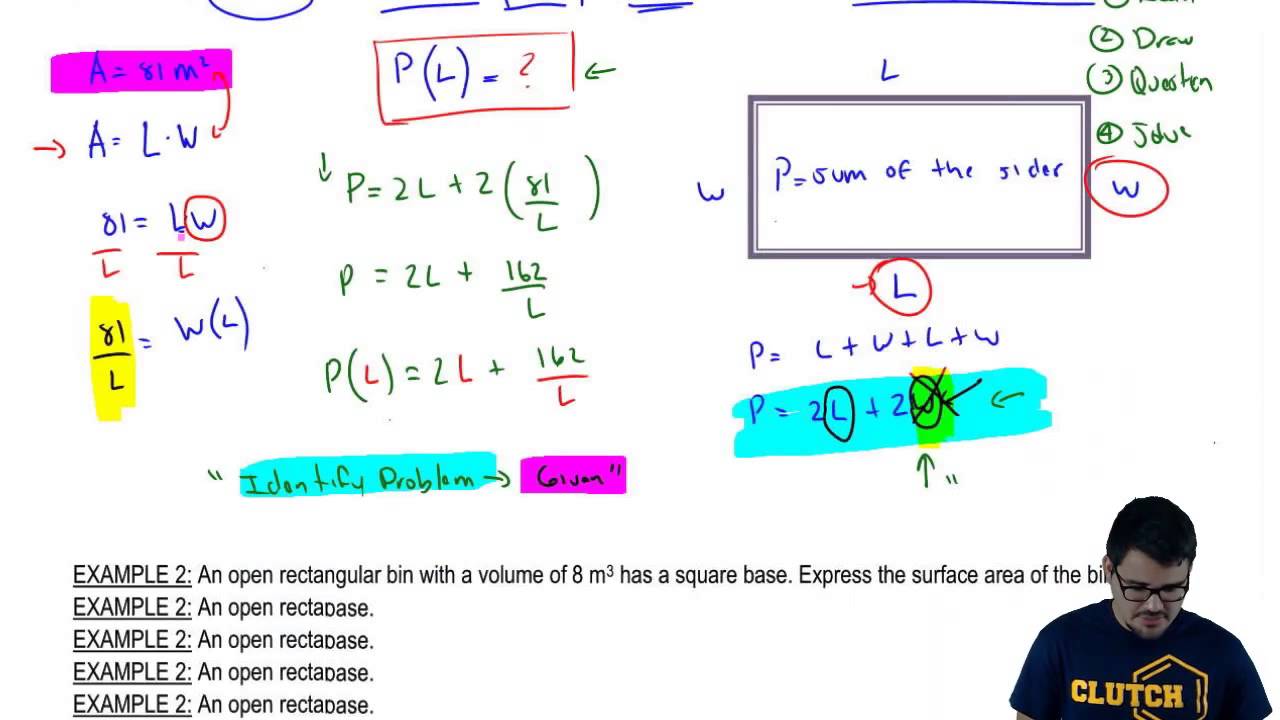 A = 81 m²
P(L) = ?
←
② Draw
③ Question
④ Solve
L
→ A = L · W
↓ P = 2L + 2(81/L)
W
P = sum of the sides
W
81/L = LW/L
P = 2L + 162/L
→ L
81/L = W(L)
P = L + W + L + W
P(L) = 2L + 162/L
P = 2L + 2W ←
" Identify Problem → Given "
↑ "
EXAMPLE 2: An open rectangular bin with a volume of 8 m³ has a square base. Express the surface area of the bi
EXAMPLE 2: An open rectabase.
EXAMPLE 2: An open rectabase.
EXAMPLE 2: An open rectabase.
EXAMPLE 2: An open rectabase.
CLUTCH